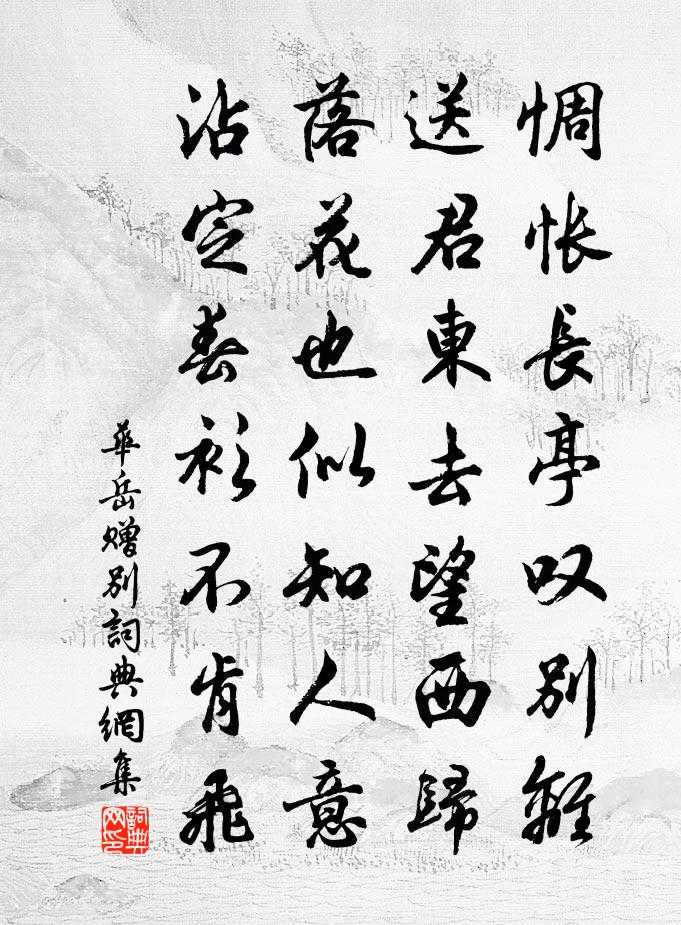 惆悵長亭叹別離
送君東去望西歸
落花也似知人意
沾定春衫不肯飛
華岳贈別詞典網集
詞典网印